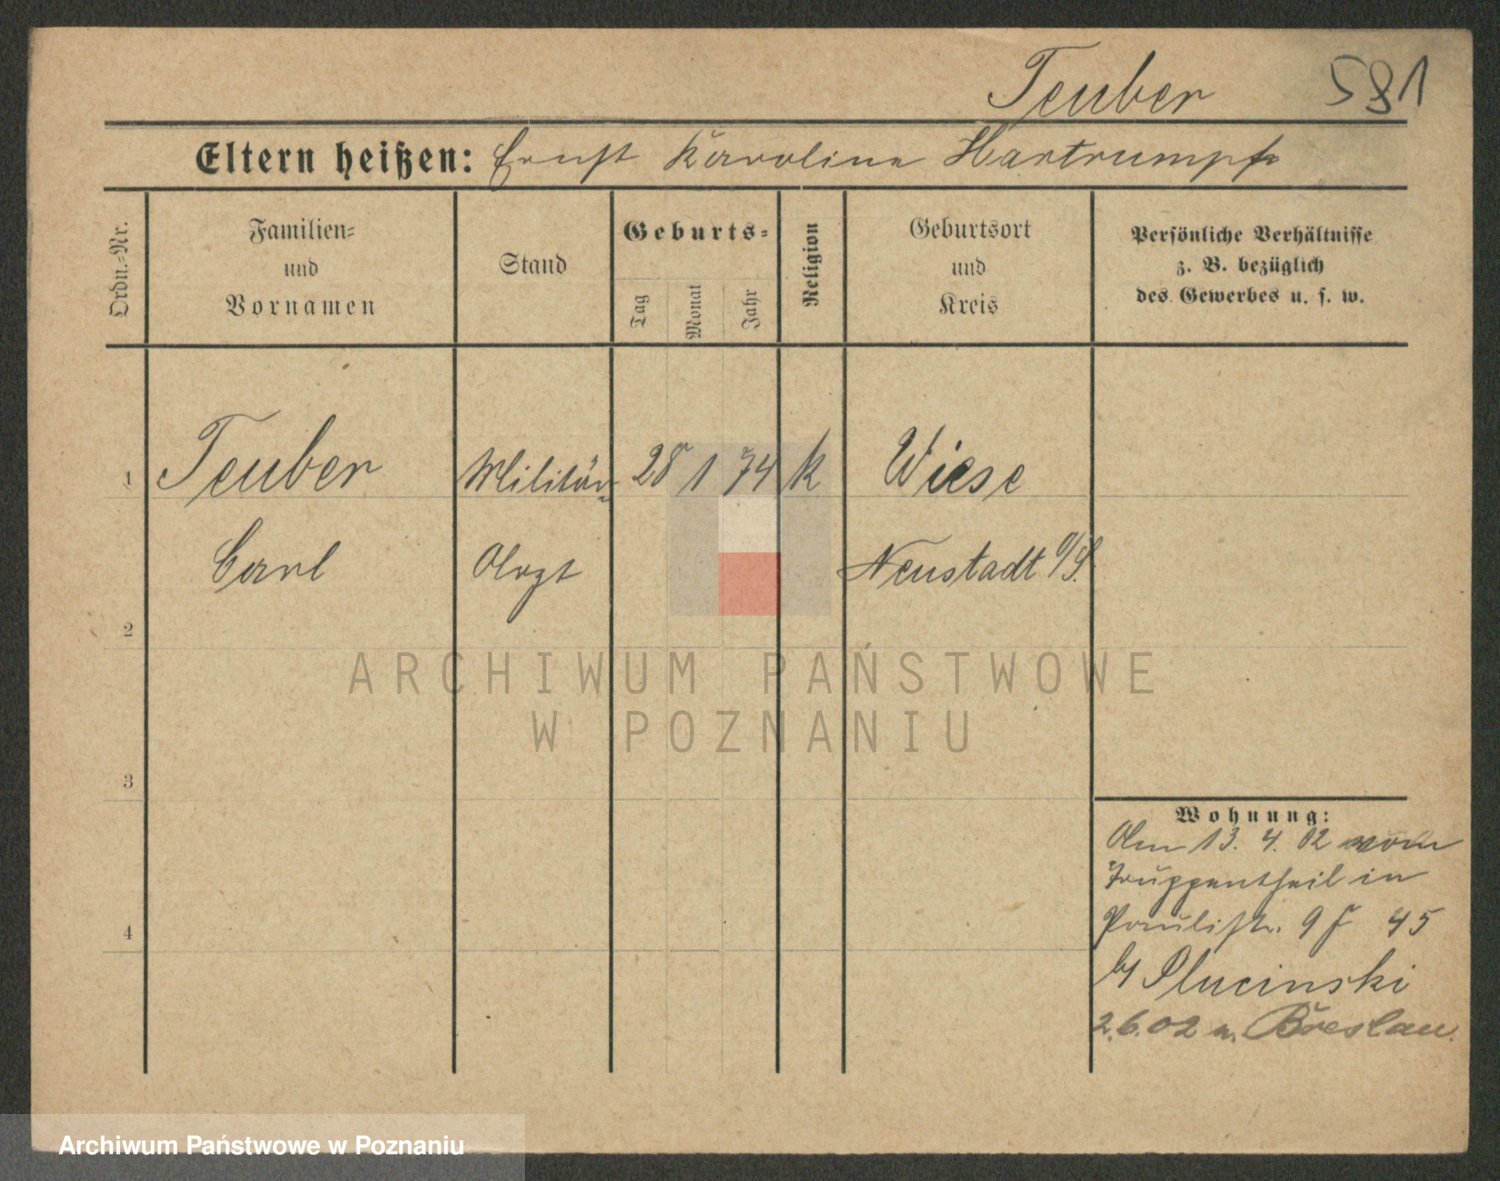 Teuber 581
Eltern heißen: Ernst Karoline Hartrumpf
Ordn.-Nr.
Familien-
und
Vornamen
Stand
Geburts-
Tag
Monat
Jahr
Religion
Geburtsort
und
Kreis
Persönliche Verhältnisse
z. B. bezüglich
des Gewerbes u. s. w.
1 Teuber Militär- 28 1 74 k Wiese
Carl Arzt Neustadt O/S.
2
3
4
Wohnung:
Am 13. 4. 02 vom
Truppentheil in
Paulistr. 9 F 45
b/ Plucinski
2.6.02 n. Breslau.
ARCHIWUM PAŃSTWOWE
W POZNANIU
Archiwum Państwowe w Poznaniu